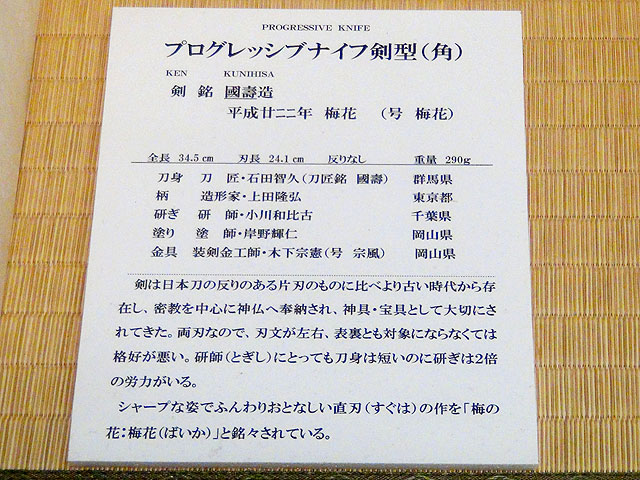 PROGRESSIVE KNIFE
プログレッシブナイフ剣型(角)
KEN KUNIHISA
剣 銘 國壽造
平成廿二二年 梅花 (号 梅花)
全長 34.5㎝ 刃長 24.1㎝ 反りなし 重量 290g
刀身 刀 匠・石田智久(刀匠銘 國壽) 群馬県
柄 造形家・上田隆弘 東京都
研ぎ 研 師・小川和比古 千葉県
塗り 塗 師・岸野輝仁 岡山県
金具 装剣金工師・木下宗憲(号 宗風) 岡山県
剣は日本刀の反りのある片刃のものに比べより古い時代から存
在し、密教を中心に神仏へ奉納され、神具・宝具として大切にさ
れてきた。両刃なので、刃文が左右、表裏とも対象にならなくては
格好が悪い。研師(とぎし)にとっても刀身は短いのに研ぎは2倍
の労力がいる。
シャープな姿でふんわりおとなしい直刃(すぐは)の作を「梅の
花:梅花(ばいか)」と銘々されている。